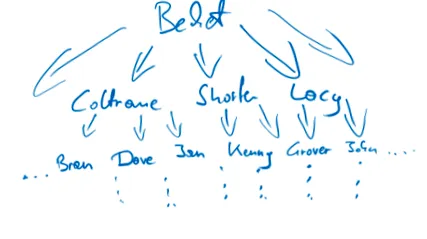 Coltrane Shorter Lacy
... Bran Dave Jan Kenny Grover John ....